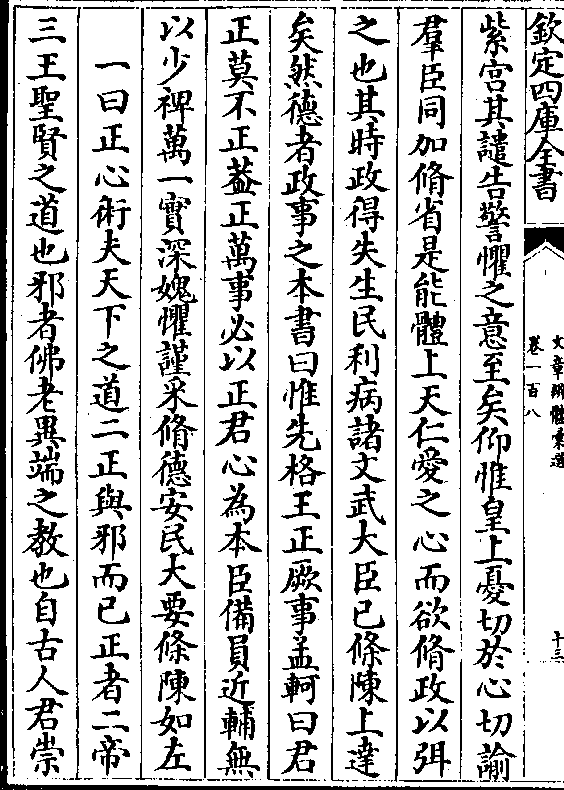 欽定四庫全書
文章辨體彙選
卷一百八
十三
紫宫其譴告警懼之意至矣仰惟皇上憂切於心切諭
羣臣同加脩省是能體上天仁愛之心而欲脩政以弭
之也其時政得失生民利病諸文武大臣已條陳上達
矣然德者政事之本書曰惟先格王正厥事孟軻曰君
正莫不正葢正萬事必以正君心為本臣備員近輔無
以少裨萬一實深媿懼謹采脩德安民大要條陳如左
一曰正心術夫天下之道二正與邪而已正者二帝
三王聖賢之道也邪者佛老異端之教也自古人君崇